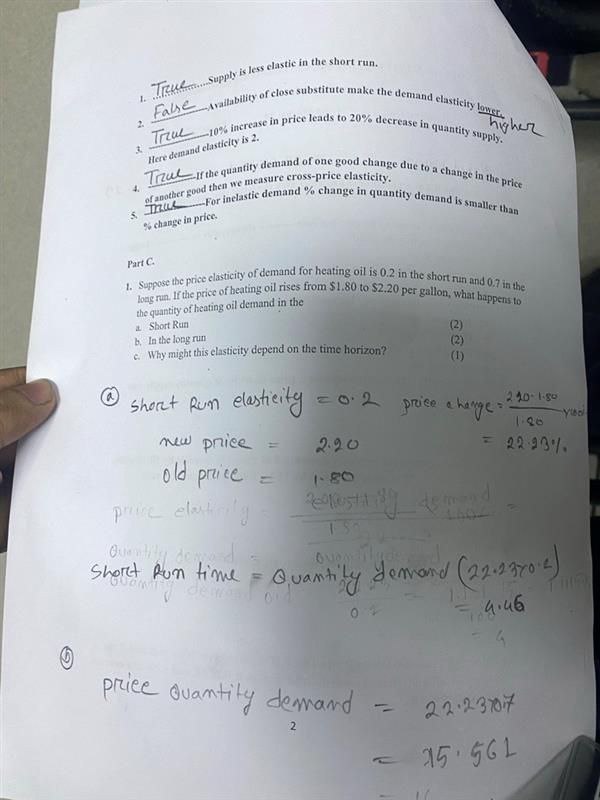 1. True Supply is less elastic in the short run.
2. False Availability of close substitute make the demand elasticity lower. higher
3. True 10% increase in price leads to 20% decrease in quantity supply.
Here demand elasticity is 2.
4. True If the quantity demand of one good change due to a change in the price
of another good then we measure cross-price elasticity.
5. True For inelastic demand % change in quantity demand is smaller than
% change in price.
Part C.
1. Suppose the price elasticity of demand for heating oil is 0.2 in the short run and 0.7 in the
long run. If the price of heating oil rises from $1.80 to $2.20 per gallon, what happens to
the quantity of heating oil demand in the
a. Short Run (2)
b. In the long run (2)
c. Why might this elasticity depend on the time horizon? (1)
a Short Run elasticity = 0.2 price change = 2.20-1.80
1.80
new price = 2.20 = 22.23%
old price = 1.80
price elasticity = demand =
1.80
Quantity demand = Quantity demand
Short Run time = Quantity demand (22.23×0.2)
Quantity demand old
0.2 = 4.46
= 4
b
price Quantity demand = 22.23×0.7
2
= 15.561